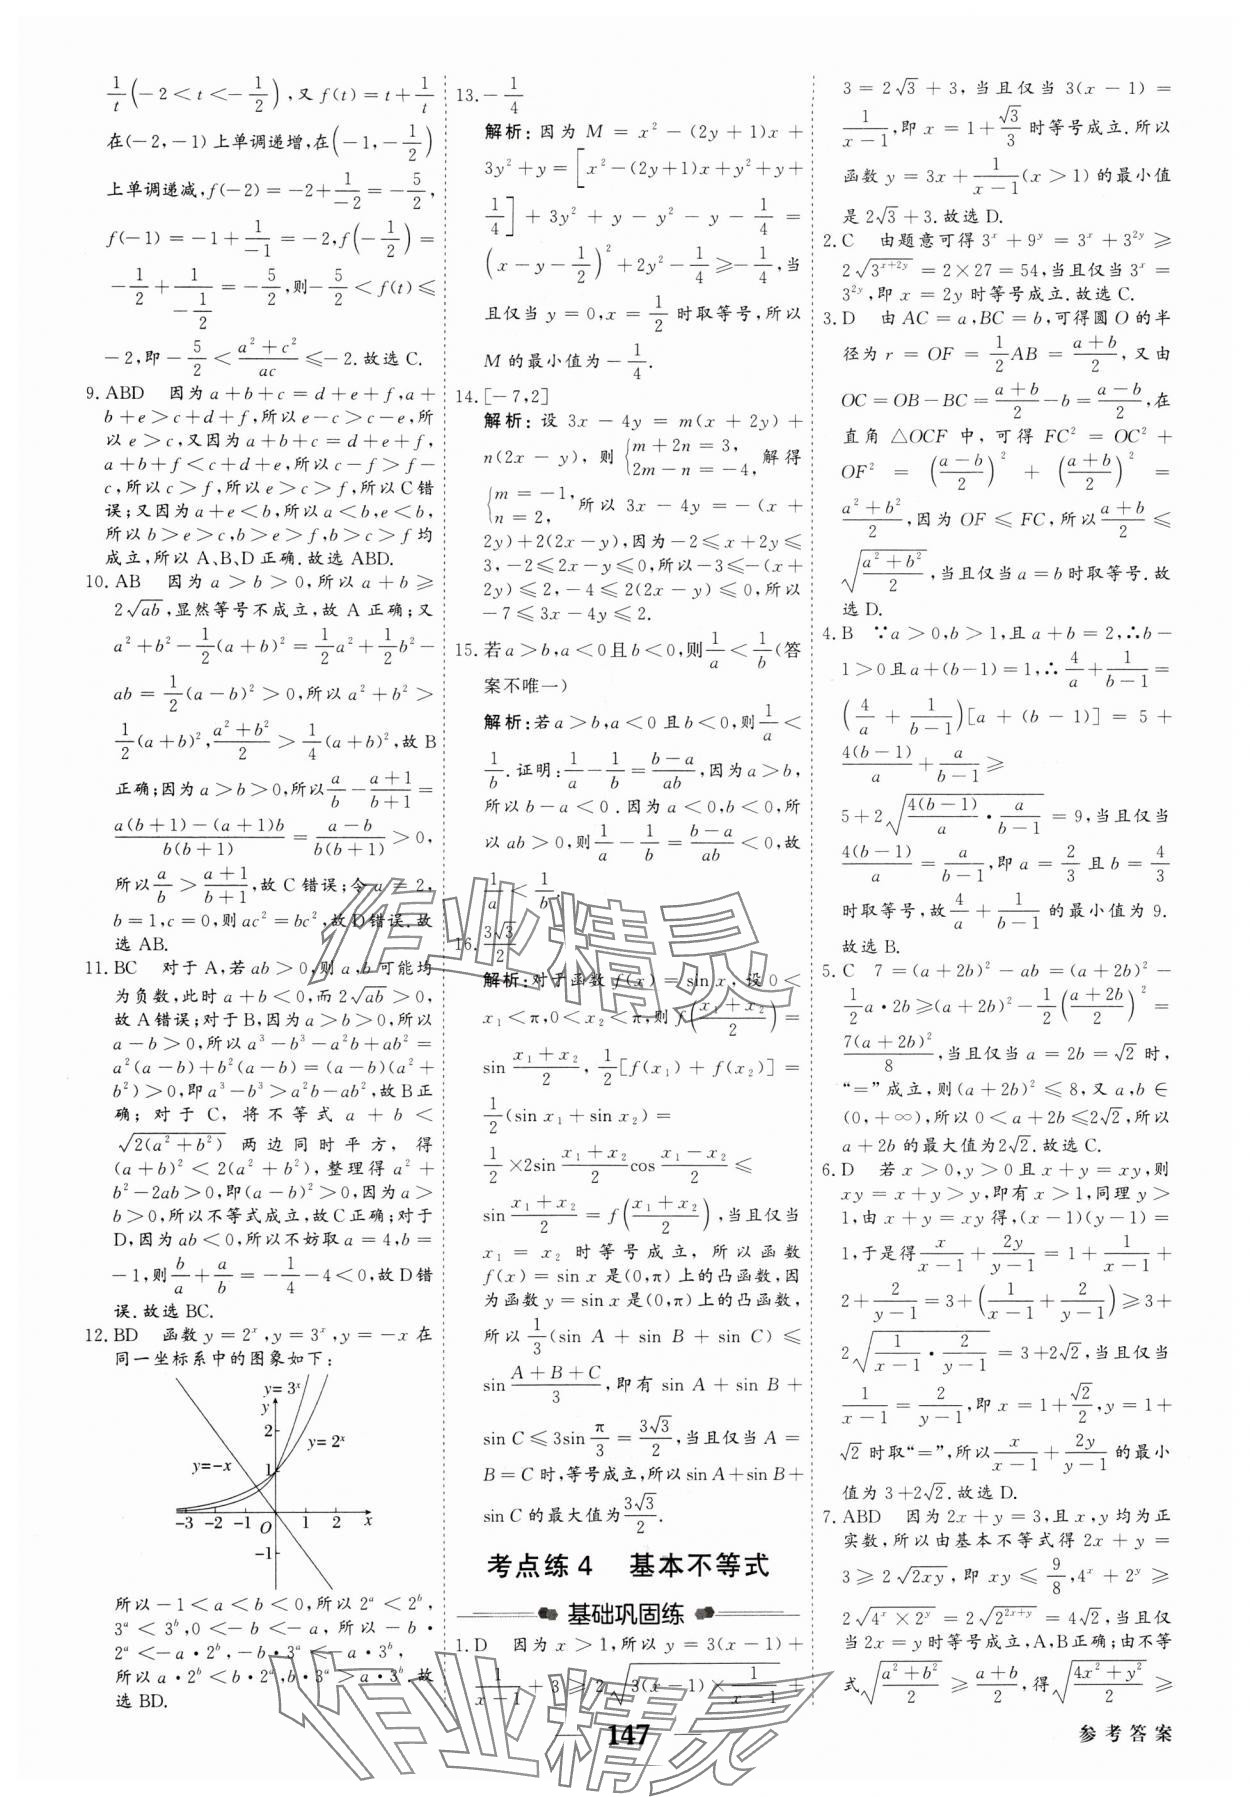 1/t(-2<t<-1/2),又 f(t)=t+1/t
在(-2,-1)上单调递增,在(-1,-1/2)
上单调递减,f(-2)=-2+1/-2=-5/2,
f(-1)=-1+1/-1=-2,f(-1/2)=
-1/2+1/(-1/2)=-5/2,则-5/2<f(t)≤
-2,即-5/2<(a²+c²)/ac≤-2.故选 C.
9. ABD 因为 a+b+c=d+e+f,a+
b+e>c+d+f,所以 e-c>c-e,所
以 e>c,又因为 a+b+c=d+e+f,
a+b+f<c+d+e,所以 c-f>f-
c,所以 c>f,所以 e>c>f,所以 C 错
误;又因为 a+e<b,所以 a<b,e<b,
所以 b>e>c,b>e>f,b>c>f 均
成立,所以 A、B、D 正确.故选 ABD.
10. AB 因为 a>b>0,所以 a+b≥
2√ab,显然等号不成立,故 A 正确;又
a²+b²-1/2(a+b)²=1/2a²+1/2b²-
ab=1/2(a-b)²>0,所以 a²+b²>
1/2(a+b)²,(a²+b²)/2>1/4(a+b)²,故 B
正确;因为 a>b>0,所以a/b-(a+1)/(b+1)=
(a(b+1)-(a+1)b)/(b(b+1))=(a-b)/(b(b+1))>0,
所以a/b>(a+1)/(b+1),故 C 错误;令 a=2,
b=1,c=0,则 ac²=bc²,故 D 错误.故
选 AB.
11. BC 对于 A,若 ab>0,则 a,b 可能均
为负数,此时 a+b<0,而 2√ab>0,
故 A 错误;对于 B,因为 a>b>0,所以
a-b>0,所以 a³-b³-a²b+ab²=
a²(a-b)+b²(a-b)=(a-b)(a²+
b²)>0,即 a³-b³>a²b-ab²,故 B 正
确;对于 C,将不等式 a+b<
√(2(a²+b²)) 两边同时平方,得
(a+b)²<2(a²+b²),整理得 a²+
b²-2ab>0,即(a-b)²>0,因为 a>
b>0,所以不等式成立,故 C 正确;对于
D,因为 ab<0,所以不妨取 a=4,b=
-1,则b/a+a/b=-1/4-4<0,故 D 错
误.故选 BC.
12. BD 函数 y=2ˣ,y=3ˣ,y=-x 在
同一坐标系中的图象如下:
y=3ˣ
y
2
y=2ˣ
y=-x
1
-3 -2 -1 O 1 2 x
-1
所以-1<a<b<0,所以 2ᵃ<2ᵇ,
3ᵃ<3ᵇ,0<-b<-a,所以-b·
2ᵃ<-a·2ᵇ,-b·3ᵃ<-a·3ᵇ,
所以 a·2ᵇ<b·2ᵃ,b·3ᵃ>a·3ᵇ.故
选 BD.
13. -1/4
解析:因为 M=x²-(2y+1)x+
3y²+y=[x²-(2y+1)x+y²+y+
1/4]+3y²+y-y²-y-1/4=
(x-y-1/2)²+2y²-1/4≥-1/4,当
且仅当 y=0,x=1/2 时取等号,所以
M 的最小值为-1/4.
14. [-7,2]
解析:设 3x-4y=m(x+2y)+
n(2x-y),则{m+2n=3, 2m-n=-4, 解得
{m=-1, n=2, 所以 3x-4y=-(x+
2y)+2(2x-y),因为-2≤x+2y≤
3,-2≤2x-y≤0,所以-3≤-(x+
2y)≤2,-4≤2(2x-y)≤0,所以
-7≤3x-4y≤2.
15. 若 a>b,a<0 且 b<0,则1/a<1/b(答
案不唯一)
解析:若 a>b,a<0 且 b<0,则1/a<
1/b.证明:1/a-1/b=(b-a)/ab,因为 a>b,
所以 b-a<0.因为 a<0,b<0,所
以 ab>0,则1/a-1/b=(b-a)/ab<0,故
1/a<1/b.
16. 3√3/2
解析:对于函数 f(x)=sin x,设 0<
x₁<π,0<x₂<π,则 f((x₁+x₂)/2)=
sin (x₁+x₂)/2,1/2[f(x₁)+f(x₂)]=
1/2(sin x₁+sin x₂)=
1/2×2sin (x₁+x₂)/2 cos (x₁-x₂)/2≤
sin (x₁+x₂)/2=f((x₁+x₂)/2),当且仅当
x₁=x₂ 时等号成立,所以函数
f(x)=sin x 是(0,π)上的凸函数,因
为函数 y=sin x 是(0,π)上的凸函数,
所以1/3(sin A+sin B+sin C)≤
sin (A+B+C)/3,即有 sin A+sin B+
sin C≤3sin π/3=3√3/2,当且仅当 A=
B=C 时,等号成立,所以 sin A+sin B+
sin C 的最大值为3√3/2.
考点练 4 基本不等式
基础巩固练
1. D 因为 x>1,所以 y=3(x-1)+
1/(x-1)+3≥2√(3(x-1)×1/(x-1))+
3=2√3+3,当且仅当 3(x-1)=
1/(x-1),即 x=1+√3/3 时等号成立.所以
函数 y=3x+1/(x-1)(x>1)的最小值
是 2√3+3.故选 D.
2. C 由题意可得 3ˣ+9ʸ=3ˣ+3²ʸ≥
2√(3ˣ⁺²ʸ)=2×27=54,当且仅当 3ˣ=
3²ʸ,即 x=2y 时等号成立.故选 C.
3. D 由 AC=a,BC=b,可得圆 O 的半
径为 r=OF=1/2AB=(a+b)/2,又由
OC=OB-BC=(a+b)/2-b=(a-b)/2,在
直角△OCF 中,可得 FC²=OC²+
OF²=((a-b)/2)²+((a+b)/2)²=
(a²+b²)/2,因为 OF≤FC,所以(a+b)/2≤
√((a²+b²)/2),当且仅当 a=b 时取等号.故
选 D.
4. B ∵a>0,b>1,且 a+b=2,∴b-
1>0 且 a+(b-1)=1,∴4/a+1/(b-1)=
(4/a+1/(b-1))[a+(b-1)]=5+
4(b-1)/a+a/(b-1)≥
5+2√(4(b-1)/a·a/(b-1))=9,当且仅当
4(b-1)/a=a/(b-1),即 a=2/3 且 b=4/3
时取等号,故4/a+1/(b-1) 的最小值为 9.
故选 B.
5. C 7=(a+2b)²-ab=(a+2b)²-
1/2a·2b≥(a+2b)²-1/2((a+2b)/2)²=
7(a+2b)²/8,当且仅当 a=2b=√2 时,
“=”成立,则(a+2b)²≤8,又 a,b∈
(0,+∞),所以 0<a+2b≤2√2,所以
a+2b 的最大值为2√2.故选 C.
6. D 若 x>0,y>0 且 x+y=xy,则
xy=x+y>y,即有 x>1,同理 y>
1,由 x+y=xy 得,(x-1)(y-1)=
1,于是得x/(x-1)+2y/(y-1)=1+1/(x-1)+
2+2/(y-1)=3+(1/(x-1)+2/(y-1))≥3+
2√(1/(x-1)·2/(y-1))=3+2√2,当且仅当
1/(x-1)=2/(y-1),即 x=1+√2/2,y=1+
√2 时取“=”,所以x/(x-1)+2y/(y-1) 的最小
值为 3+2√2.故选 D.
7. ABD 因为 2x+y=3,且 x,y 均为正
实数,所以由基本不等式得 2x+y=
3≥2√2xy,即 xy≤9/8,4ˣ+2ʸ≥
2√(4ˣ×2ʸ)=2√(2²ˣ⁺ʸ)=4√2,当且仅
当 2x=y 时等号成立,A、B正确;由不等
式√((a²+b²)/2)≥(a+b)/2,得√((4x²+y²)/2)≥
147
参考答案
作业精灵
作业精灵